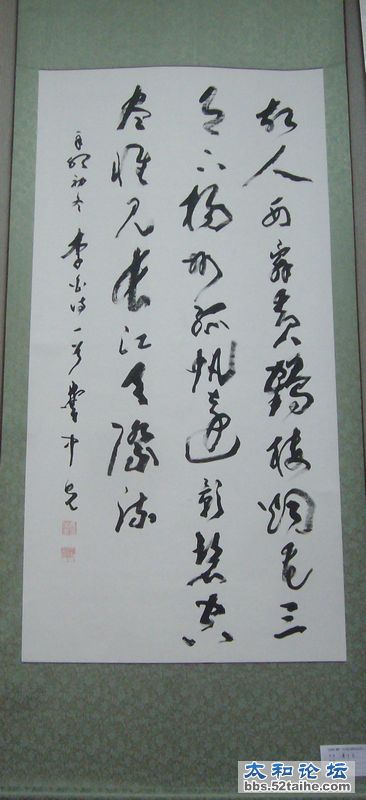 故人西辞黄鹤楼烟花三
月下揚州孤帆遠影碧空
尽惟見長江天際流
初冬李白诗一首
太和论坛
bbs.52taihe.com